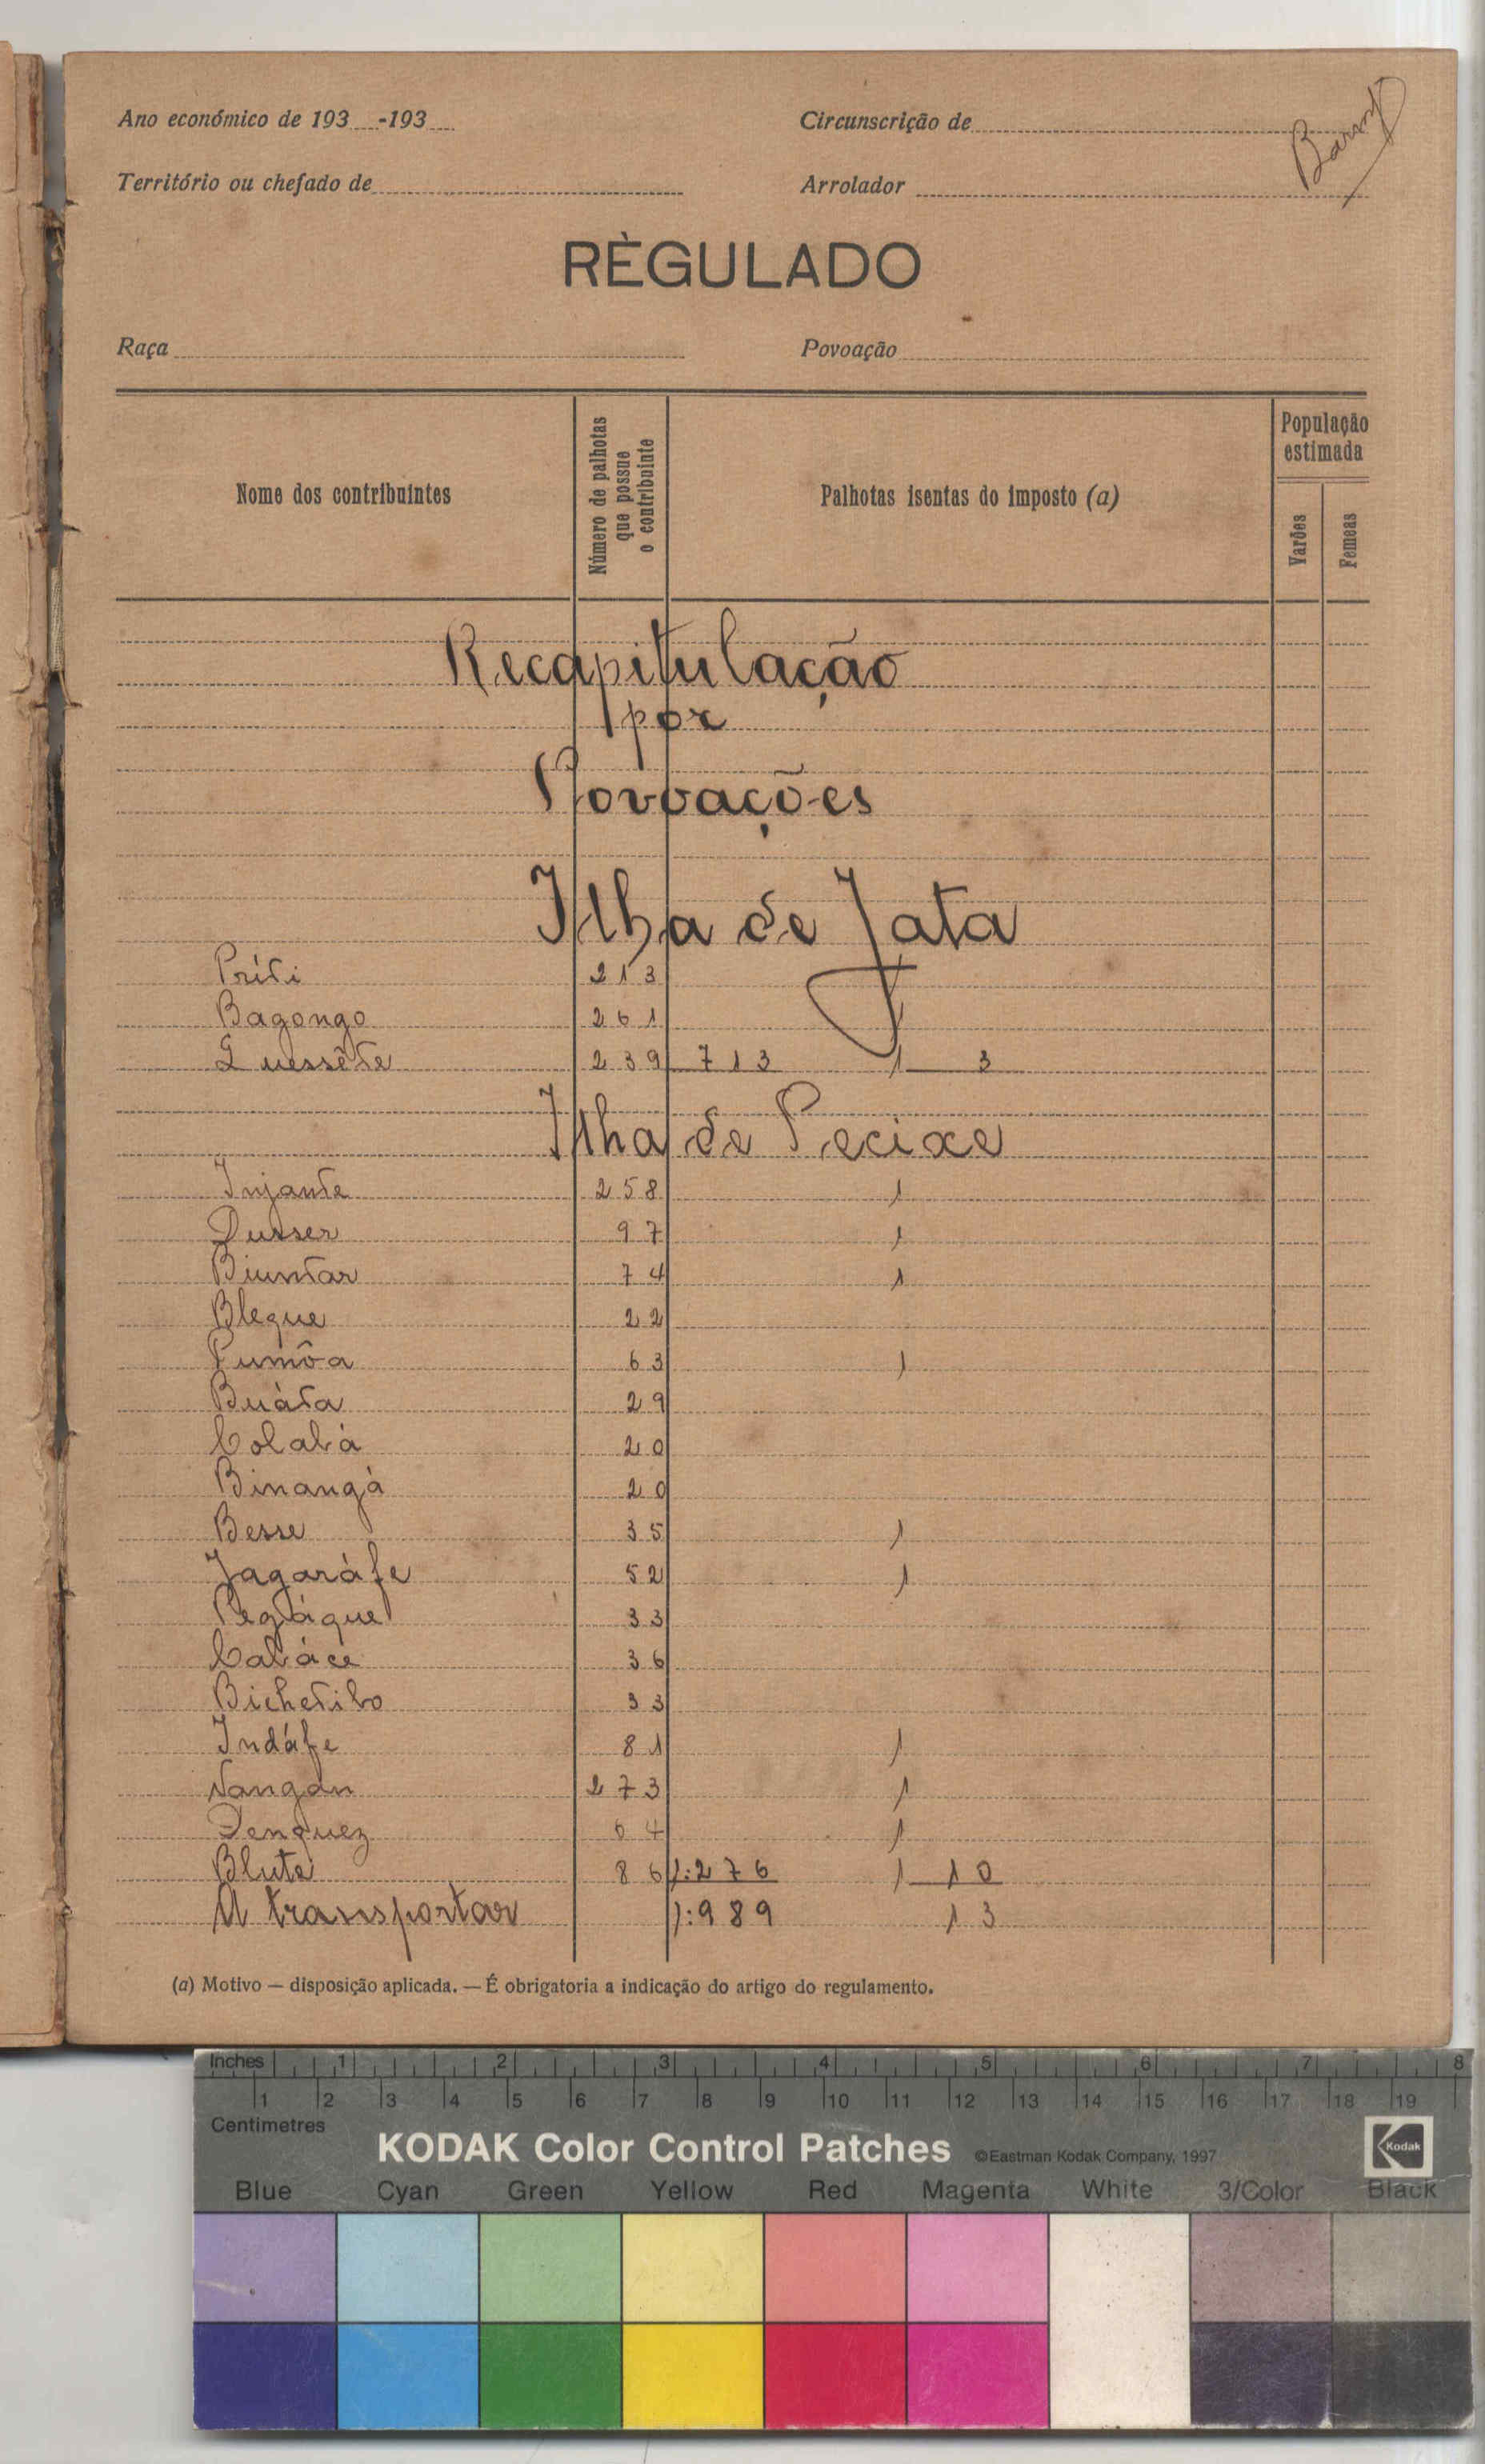 Ano económico de 193 -193
Circunscrição de
Território ou chefado de
Arrolador
RÈGULADO
Raça
Povoação
Nome dos contribuintes
Número de palhotas que possue o contribuinte
Palhotas isentas do imposto (a)
População estimada
Varões
Femeas
Recapitulação
por
Povoações
Ilha de Jata
Príti 213
Bagongo 261 1
Quessête 239 713 1 3
Ilha de Pecixe
Injante 258 1
Dusser 97 1
Biuntar 74 1
Bleque 22
Pumôa 63 1
Buáta 29
Colabà 20
Binangà 20
Besse 35 1
Jagaráfe 52 1
33
Cabáce 36
Bichetibo 33
Indáfe 81 1
Nangan 273 1
Denguez 64 1
Blute 86 1:276 1 10
A transportar 1:989 13
(a) Motivo — disposição aplicada. — É obrigatoria a indicação do artigo do regulamento.
Inches 1 2 3 4 5 6 7 8
1 2 3 4 5 6 7 8 9 10 11 12 13 14 15 16 17 18 19
Centimetres
KODAK Color Control Patches ©Eastman Kodak Company, 1997
Kodak
Blue Cyan Green Yellow Red Magenta White 3/Color Black